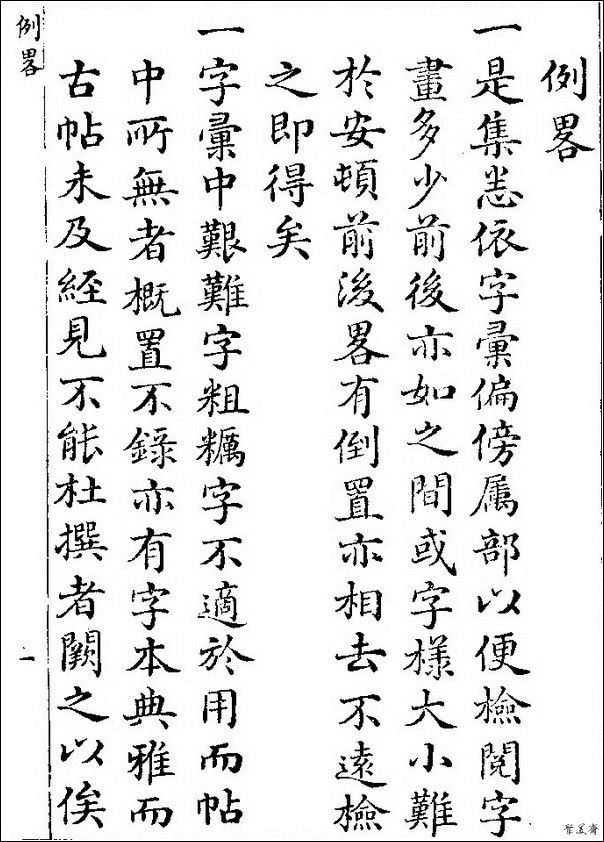 例畧
一是集悉依字彙偏傍属部以便檢閲字
畫多少前後亦如之間或字様大小難
於安頓前後畧有倒置亦相去不遠檢
之即得矣
一字彙中艱難字粗糲字不適於用而帖
中所無者概置不錄亦有字本典雅而
古帖未及經見不能杜撰者闕之以俟
例畧
一